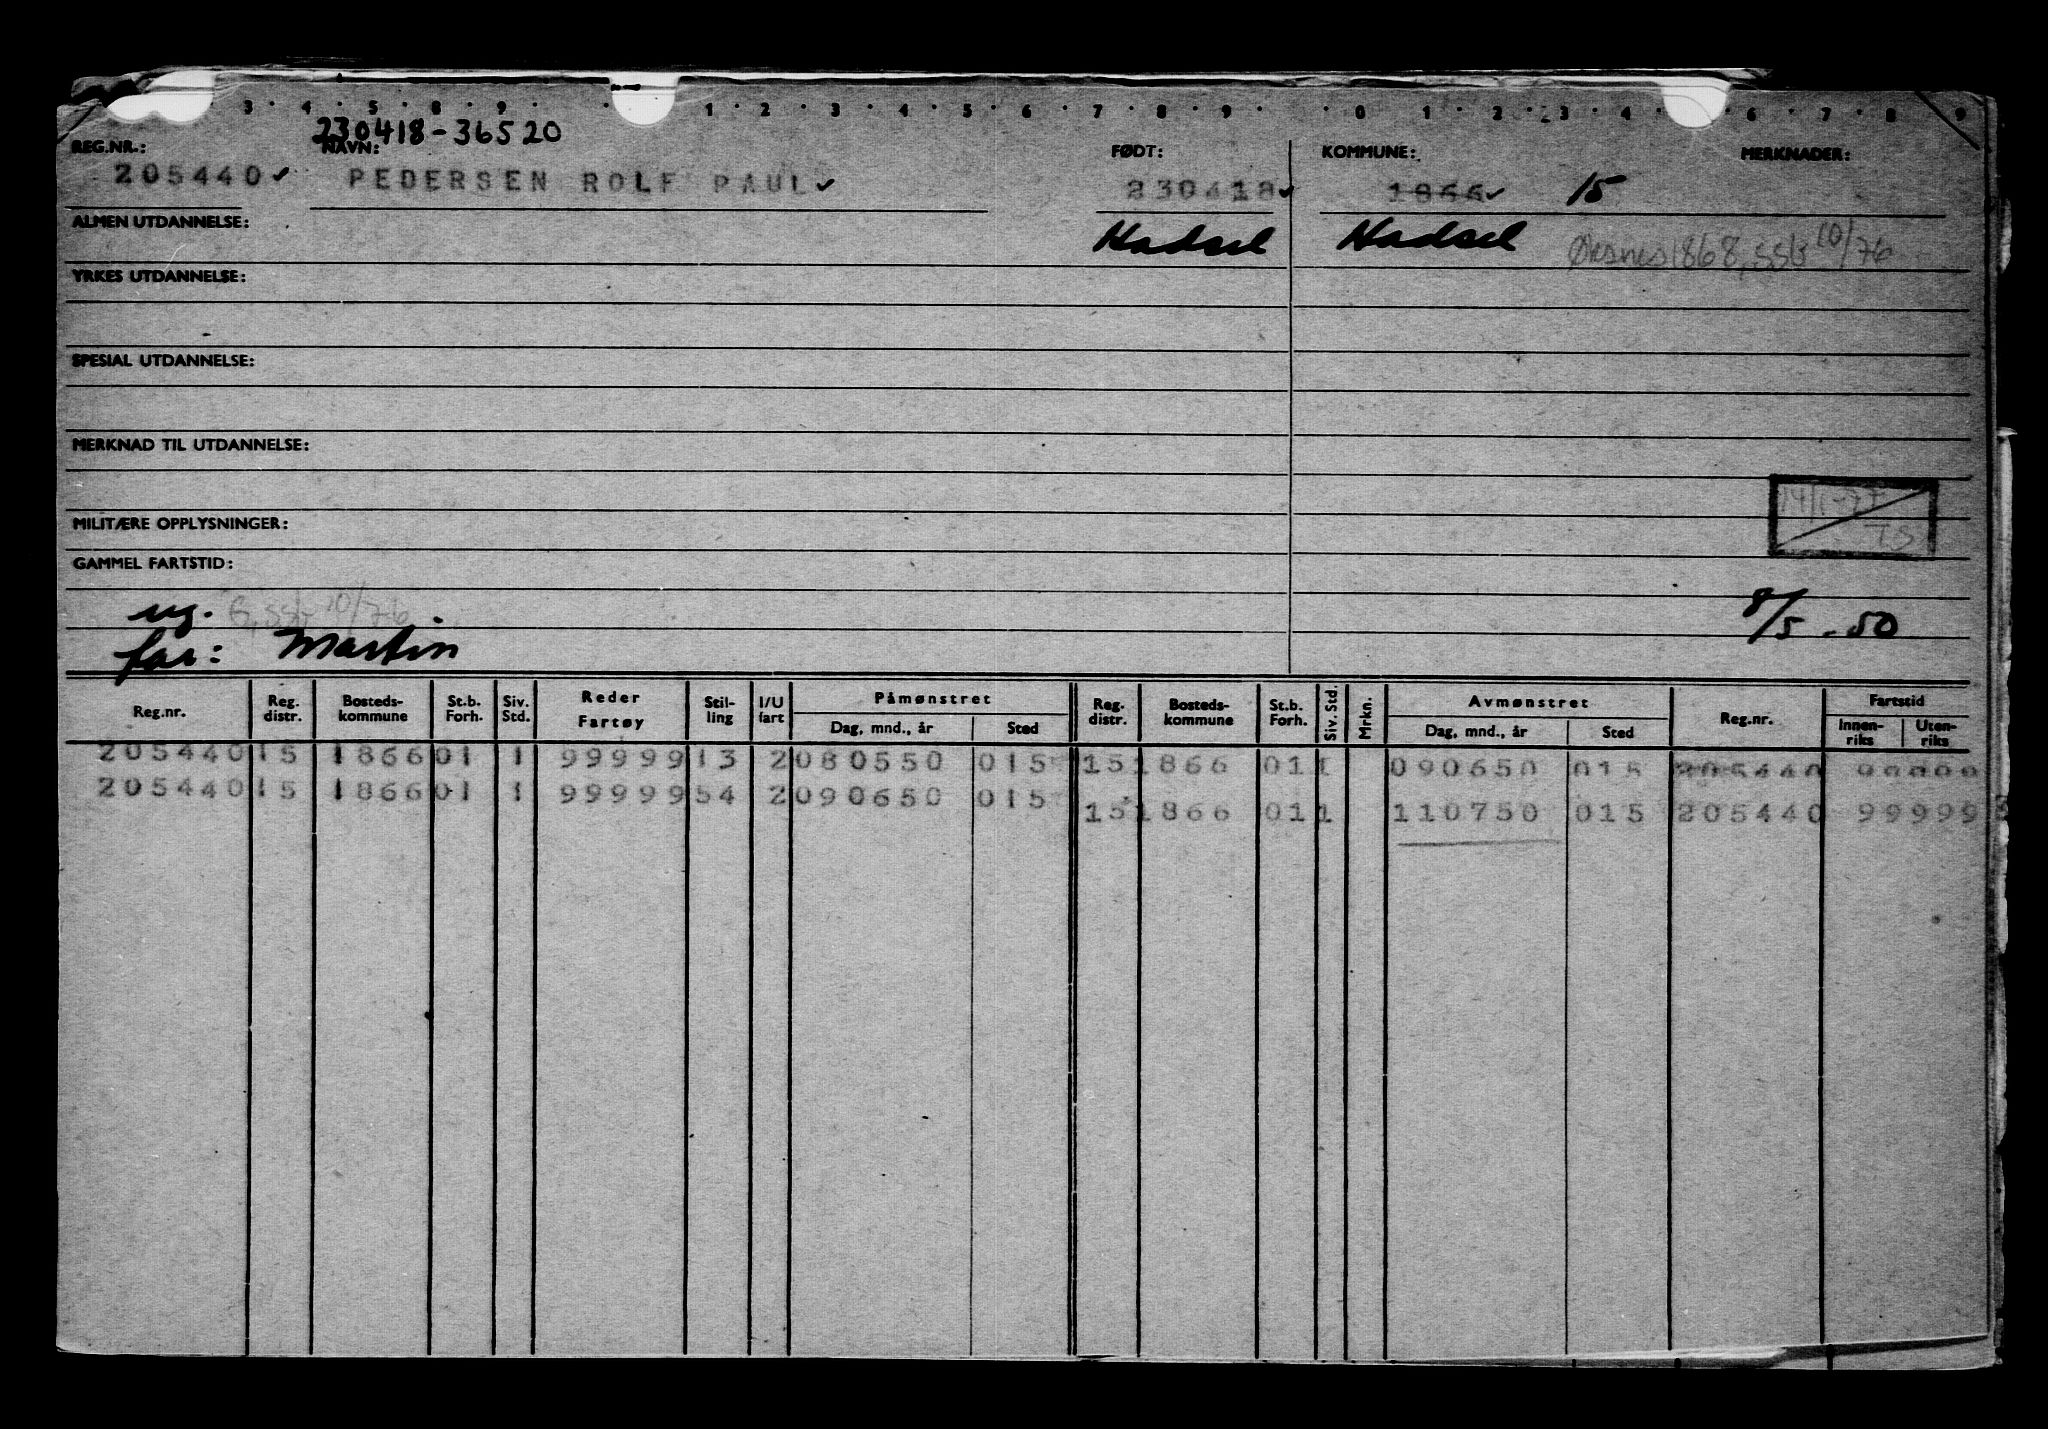 3 · 4 · 5 · 8 · 9 · · 1 · 2 · 3 · 4 · 5 · 6 · 7 · 8 · 9 · · 0 · 1 · 2 · 3 · 4 · 6 · 7 · 8 · 9
230418-36520
REG.NR.: NAVN: FØDT: KOMMUNE: MERKNADER:
205440 PEDERSEN ROLF PAUL 230418 1866 15
ALMEN UTDANNELSE: Hadsel Hadsel Øksnes 1868, ssb 10/76
YRKES UTDANNELSE:
SPESIAL UTDANNELSE:
MERKNAD TIL UTDANNELSE:
14/1-77
MILITÆRE OPPLYSNINGER: TS
GAMMEL FARTSTID:
ug. G, ssb 10/76 8/5 - 50
far: Martin
Reg.nr. Reg. distr. Bosteds-kommune St.b. Forh. Siv. Std. Reder Fartøy Stil-ling I/U fart Påmønstret Dag, mnd., år Sted Reg. distr. Bosteds-kommune St.b. Forh. Siv. Std. Mrkn. Avmønstret Dag, mnd., år Sted Reg.nr. Fartstid Innen-riks Uten-riks
205440 15 1866 01 1 99999 13 2 080550 015 15 1866 01 1 090650 015 205440 99999
205440 15 1866 01 1 99999 54 2 090650 015 15 1866 01 1 110750 015 205440 99999 3